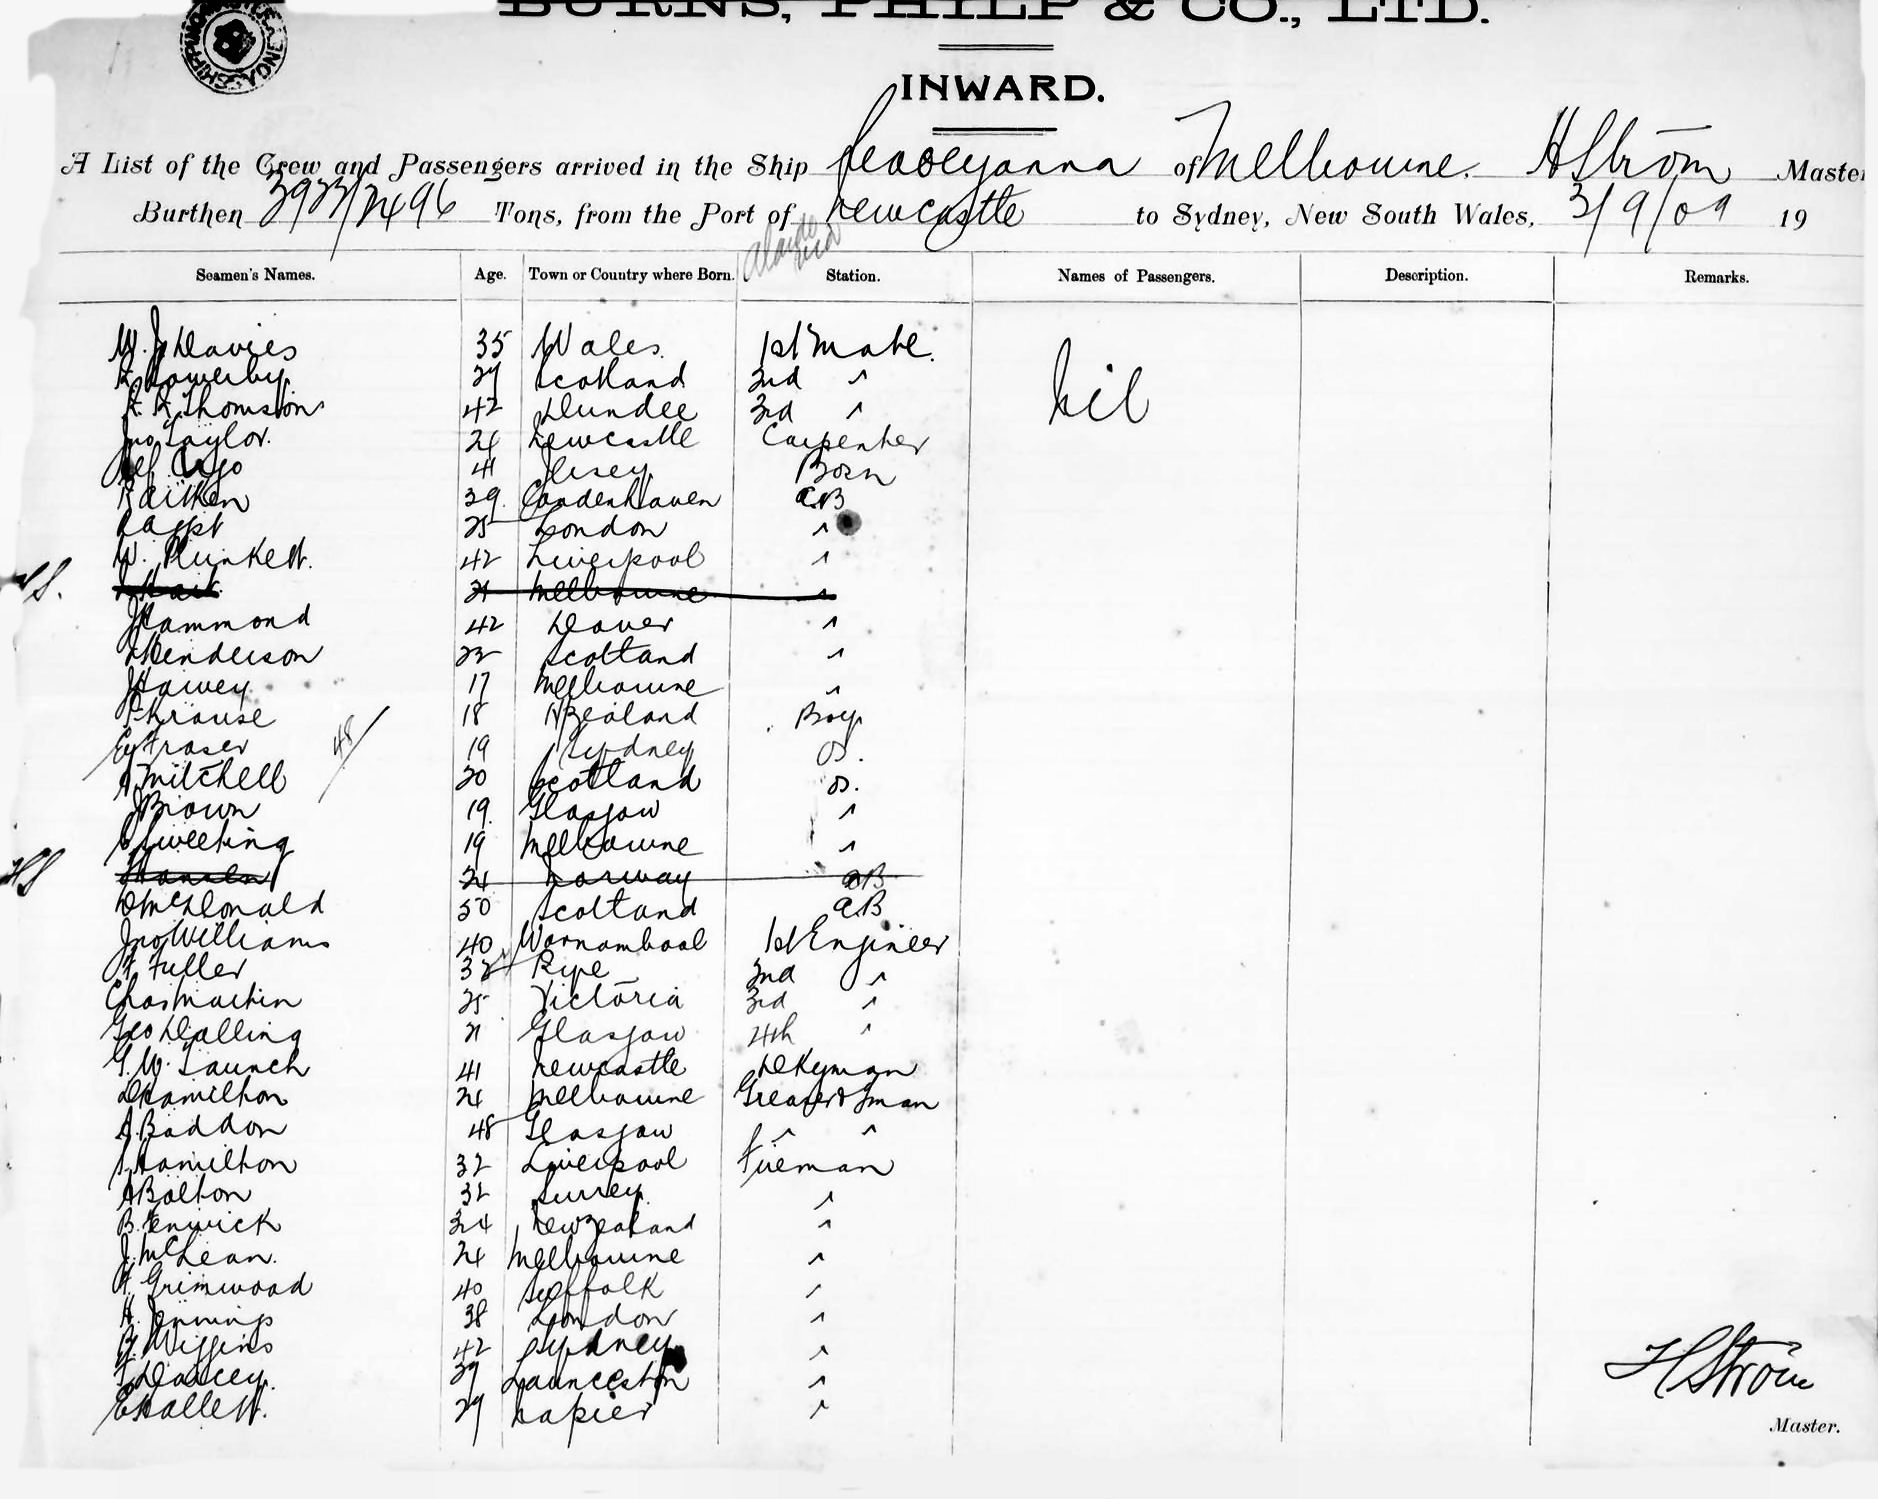 BURNS, PHILP & CO., LTD.
INWARD.
A List of the Crew and Passengers arrived in the Ship of Melbourne. H Ström Master
Burthen 3933/2496 Tons, from the Port of Newcastle to Sydney, New South Wales, 3/9/09 19
Seamen's Names. Age. Town or Country where Born. Station. Names of Passengers. Description. Remarks.
W. J. Davies 35 Wales 1st Mate. Nil
Sowerby 27 Scotland 2nd "
Thomson 42 Dundee 3rd "
Jno Taylor. 24 Newcastle Carpenter
41 Jersey Bosn
R Aitken 39 AB
25 London "
W. Plunkett. 42 Liverpool "
21 Melbourne "
J Hammond 42 Dover "
Henderson 23 Scotland "
J Harvey 17 Melbourne "
P Krause 18 N Zealand Boy
Fraser 19 Sydney OS.
48
A. Mitchell 20 Scotland OS.
J Brown 19. Glasgow "
Sweeting 19 Melbourne "
HS Hansen 24 Norway AB
D McDonald 50 Scotland AB
Jno Williams 40 Warnambool 1st Engineer
F. Fuller 32 2nd "
Chas Martin 25 Victoria 3rd "
Geo Dalling 21 Glasgow 4th "
G. W. Launch 41 Newcastle Dkyman
Hamilton 24 Melbourne Greaser & Fman
A. Baddon 48 Glasgow " "
Hamilton 32 Liverpool Fireman
A Bolton 32 Surrey "
B. Fenwick 34 New Zealand "
J. McLean. 24 Melbourne "
F. Grimwood 40 Suffolk "
H. Jennings 38 London "
Wiggins 42 Sydney "
Darcey. 39 Launceston "
E Hallett. 29 Napier "
H Ström
Master.